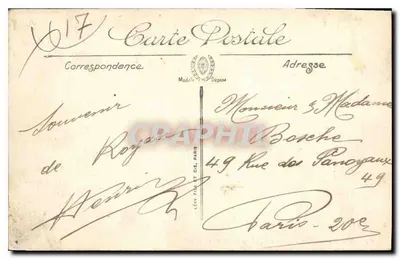 X 17
Carte Postale
Correspondance
Adresse
Modèle Déposé
Souvenir
de Royan
Henri
LÉVY FILS ET CIE, PARIS
Monsieur & Madame
Bosche
49 Rue des Panoyaux
49
Paris - 20e
CARTHAPHILE